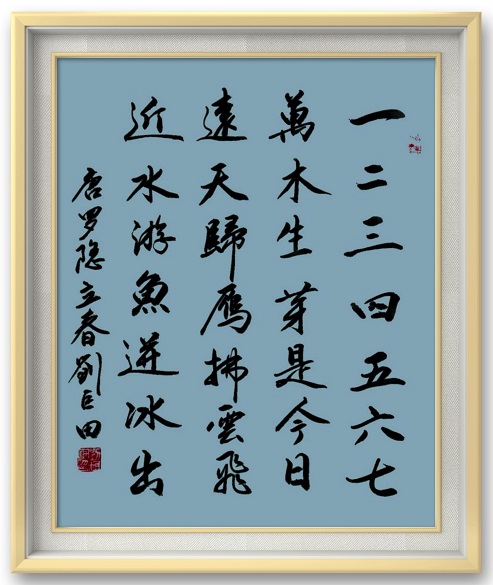 一二三四五六七
萬木生芽是今日
遠天歸鴈拂雲飛
近水游魚迸冰出
唐罗隐立春劉巨田